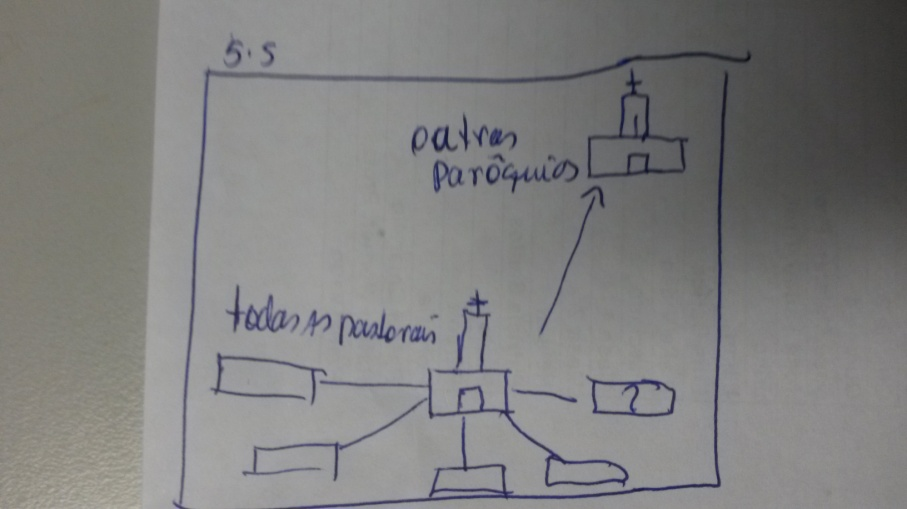 5.5
outras
paróquias
todas as pastorais
?